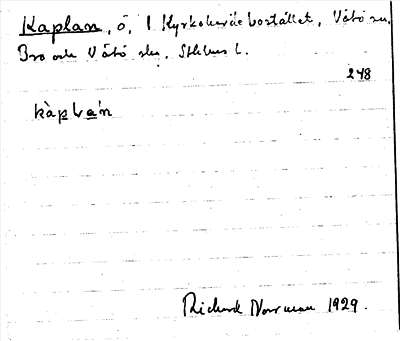 Kaplan, ö, 1 Kyrkoherdebostället, Vätö sn.
Bro och Vätö slu, Sthlms l.
248
kàplán
Richard Norrman 1929.